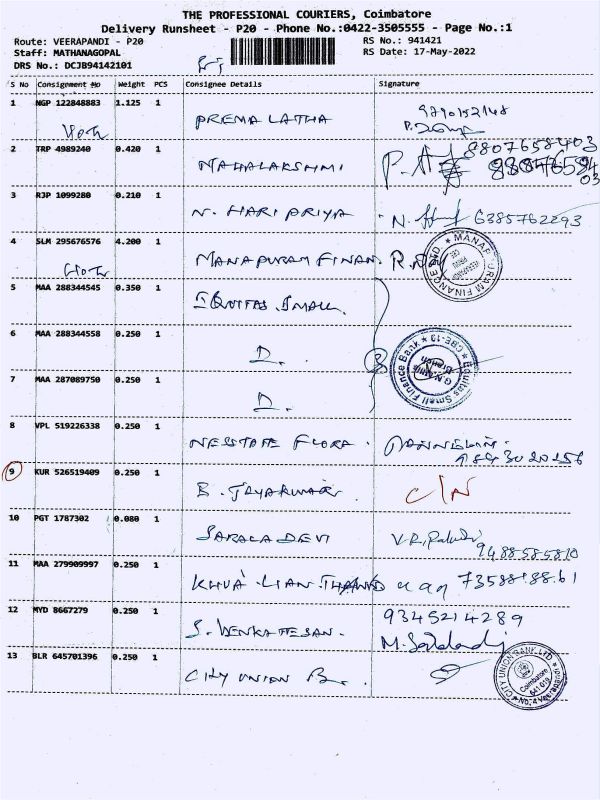 THE PROFESSIONAL COURIERS, Coimbatore
Delivery Runsheet - P20 - Phone No.:0422-3505555 - Page No.:1
Route: VEERAPANDI - P20 RS No.: 941421
Staff: MATHANAGOPAL RS Date: 17-May-2022
DRS No.: DCJB94142101
S No Consignment No Weight PCS Consignee Details Signature
1 NGP 122848883 1.125 1
PREMA LATHA
2 TRP 4989240 0.420 1 8807658403
MAHALAKSHMI
03
3 RJP 1099280 0.210 1
N. HARI PRIYA N. 6385762293
4 SLM 295676576 4.200 1
MANAPURAM FINAN
MANAPPURAM FINANCE LTD
5 MAA 288344545 0.350 1
EQUITAS SMALL
6 MAA 288344558 0.250 1
D.
Equitas Small Finance Bank * CBE-19 *
G.N. Mills
Branch
7 MAA 287089750 0.250 1
D.
8 VPL 519226338 0.250 1
NESSTATE FLORA.
9 KUR 526519409 0.250 1
B. JAYAKUMAR C/N
10 PGT 1787302 0.080 1
SARALA DEVI
9488585810
11 MAA 279909997 0.250 1
KHUA LIAN
12 MYD 8667279 0.250 1 9345214289
S. VENKATESAN.
13 BLR 645701396 0.250 1
CITY UNION B
CITY UNION BANK LTD.
Coimbatore
641 019